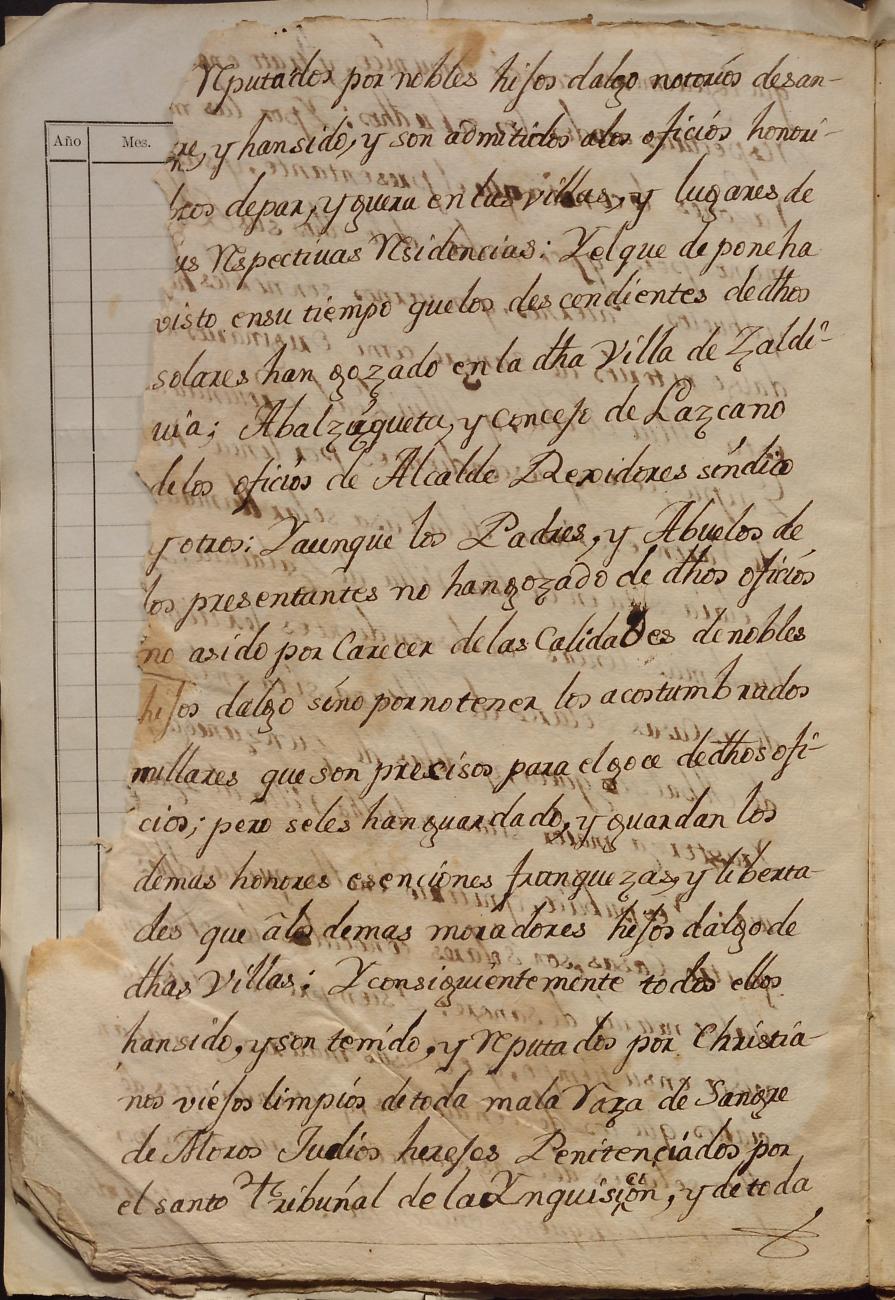 Año Mes.
Reputados por nobles hijos dalgo notorios desan-
re, y hansido, y son admitidos alos oficios honori-
bros depaz, y guera en las villas, y lugares de
us Respectivas Residencias: Yel que de pone ha
visto ensu tiempo quelos descendientes de dhos
solares han gozado en la dha Villa de Zaldi-
uia; Abalzizqueta, y Concejo de Lazcano
delos oficios de Alcalde Rexidores síndico
y otros: Yaunque los Padres, y Abuelos de
los presentantes no hangozado de dhos oficios
no asido por Carecer delas Calidades denobles
hijos dalgo sino pornotener los acostumbrados
millares que son precisos para elgoce dedhos ofi-
cios; pero seles hanguardado, y guardan los
demas honores esenciones franquezas, y liberta-
des que âlos demas moradores hijos dalgo de
dhas Villas; Yconsiguientemente todos ellos
hansido, y son tenido, y Reputados por Christia-
nos viejos limpios detoda mala Raza de Sangre
de Moros Judios herejes Penitenciados por
el santo tribunal de la Ynquisicion, y de toda